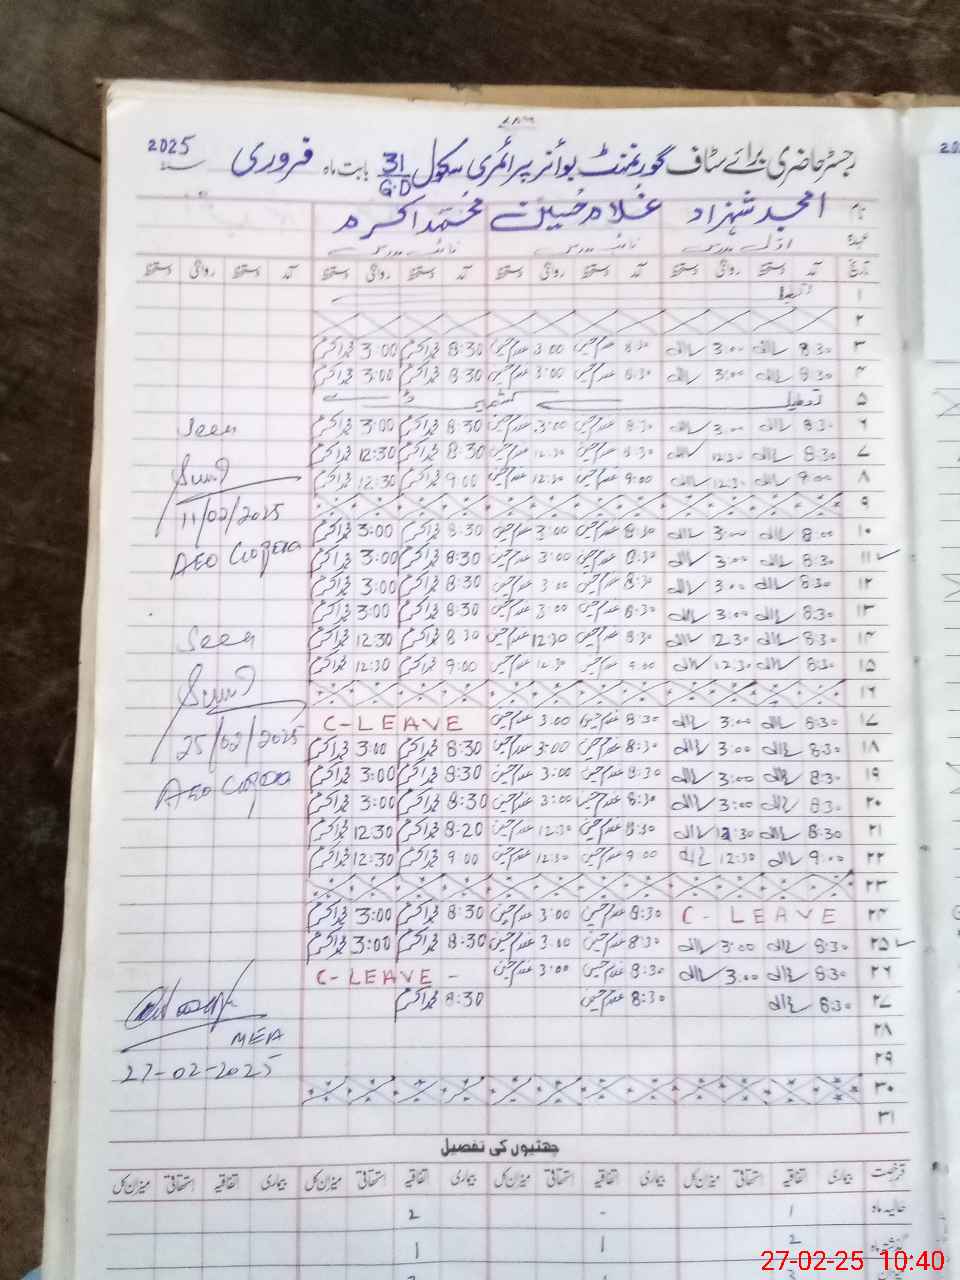 رجسٹر حاضری برائے سٹاف گورنمنٹ بوائز پرائمری سکول 31/G.D بابت ماہ فروری سنہ 2025
نام امجد شہزاد غلام حسین محمد اکرم
عہدہ اول مدرس نائب مدرس نائب مدرس
تاریخ آمد دستخط روانگی دستخط آمد دستخط روانگی دستخط آمد دستخط روانگی دستخط آمد دستخط روانگی دستخط
۱
۲
۳ 8:30 3:00 8:30 غلام حسین 3:00 غلام حسین 8:30 محمد اکرم 3:00 محمد اکرم
۴ 8:30 3:00 8:30 غلام حسین 3:00 غلام حسین 8:30 محمد اکرم 3:00 محمد اکرم
۵ تعطیل کشمیر ڈے
۶ 8:30 3:00 8:30 غلام حسین 3:00 غلام حسین 8:30 محمد اکرم 3:00 محمد اکرم
Seen
۷ 8:30 12:30 8:30 غلام حسین 12:30 غلام حسین 8:30 محمد اکرم 12:30 محمد اکرم
۸ 9:00 12:30 9:00 غلام حسین 12:30 غلام حسین 9:00 محمد اکرم 12:30 محمد اکرم
۹
11/02/2025
۱۰ 8:00 3:00 8:30 غلام حسین 3:00 غلام حسین 8:30 محمد اکرم 3:00 محمد اکرم
۱۱ 8:30 3:00 8:30 غلام حسین 3:00 غلام حسین 8:30 محمد اکرم 3:00 محمد اکرم
AEO
۱۲ 8:30 3:00 8:30 غلام حسین 3:00 غلام حسین 8:30 محمد اکرم 3:00 محمد اکرم
۱۳ 8:30 3:00 8:30 غلام حسین 3:00 غلام حسین 8:30 محمد اکرم 3:00 محمد اکرم
۱۴ 8:30 12:30 8:30 غلام حسین 12:30 غلام حسین 8:30 محمد اکرم 12:30 محمد اکرم
Seen
۱۵ 8:30 12:30 9:00 غلام حسین 12:30 غلام حسین 9:00 محمد اکرم 12:30 محمد اکرم
۱۶
۱۷ 8:30 3:00 8:30 غلام حسین 3:00 غلام حسین C-LEAVE
25/02/2025
۱۸ 8:30 3:00 8:30 غلام حسین 3:00 غلام حسین 8:30 محمد اکرم 3:00 محمد اکرم
۱۹ 8:30 3:00 8:30 غلام حسین 3:00 غلام حسین 8:30 محمد اکرم 3:00 محمد اکرم
AEO
۲۰ 8:30 3:00 8:30 غلام حسین 3:00 غلام حسین 8:30 محمد اکرم 3:00 محمد اکرم
۲۱ 8:30 12:30 8:30 غلام حسین 12:30 غلام حسین 8:20 محمد اکرم 12:30 محمد اکرم
۲۲ 9:00 12:30 9:00 غلام حسین 12:30 غلام حسین 9:00 محمد اکرم 12:30 محمد اکرم
۲۳
۲۴ C-LEAVE 8:30 غلام حسین 3:00 غلام حسین 8:30 محمد اکرم 3:00 محمد اکرم
۲۵ 8:30 3:00 8:30 غلام حسین 3:00 غلام حسین 8:30 محمد اکرم 3:00 محمد اکرم
۲۶ 8:30 3:00 8:30 غلام حسین 3:00 غلام حسین C-LEAVE -
۲۷ 8:30 8:30 غلام حسین 8:30 محمد اکرم
۲۸
MEA
۲۹
27-02-2025
۳۰
۳۱
چھٹیوں کی تفصیل
قسم رخصت بیماری اتفاقیہ استحقاقی میزان کل بیماری اتفاقیہ استحقاقی میزان کل بیماری اتفاقیہ استحقاقی میزان کل بیماری اتفاقیہ استحقاقی میزان کل
حالیہ ماہ ۱ - ۲
گذشتہ ماہ ۲ ۱ ۱
27-02-25 10:40